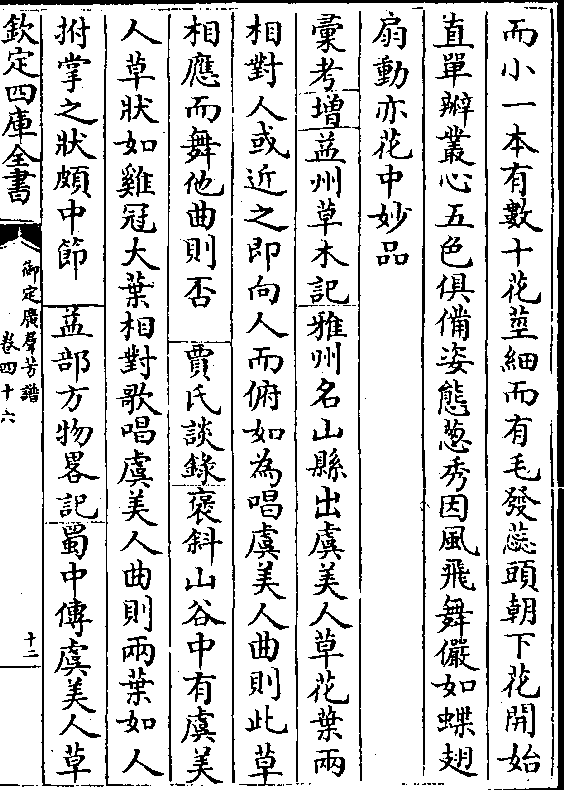 而小一本有數十花莖細而有毛發蕊頭朝下花開始
直單瓣叢心五色俱備姿態葱秀因風飛舞儼如蝶翅
扇動亦花中妙品
彙考增益州草木記雅州名山縣出虞美人草花葉兩
相對人或近之即向人而俯如為唱虞美人曲則此草
相應而舞他曲則否　賈氏談錄褒斜山谷中有虞美
人草狀如雞冠大葉相對歌唱虞美人曲則兩葉如人
拊掌之狀頗中節　益部方物畧記蜀中傳虞美人草
欽定四庫全書
御定廣羣芳譜
卷四十六
十二